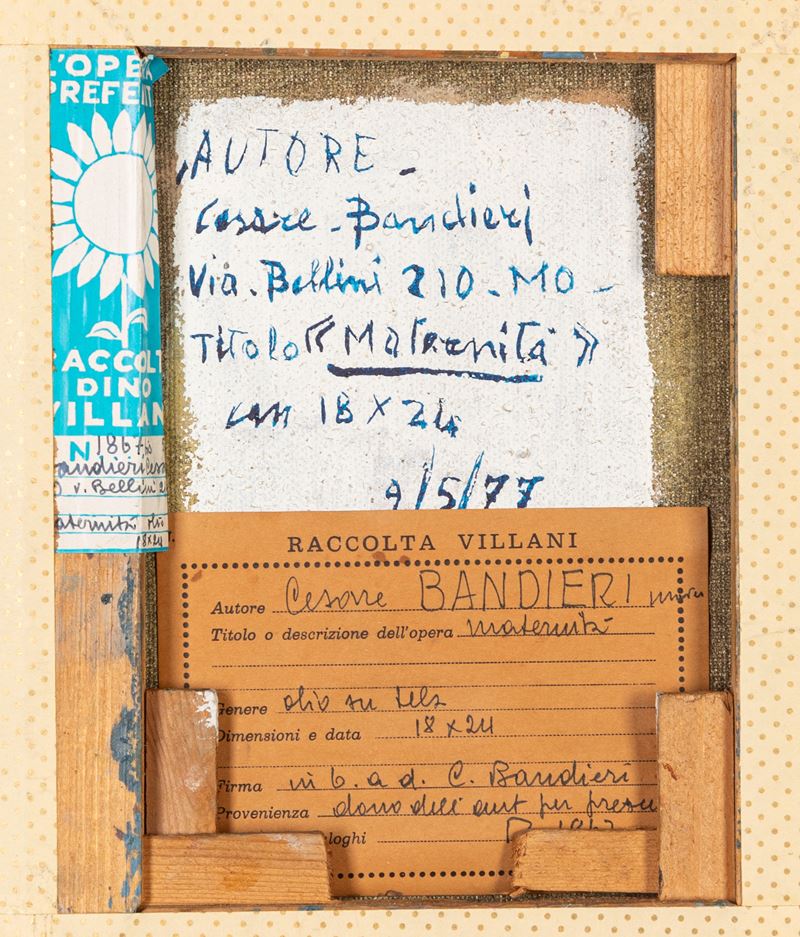 L'OPE
PREFE
RACCOLT
DINO
VILLAN
N 1867
andieri
v. Bellini
aternità olio
18x24
AUTORE -
Cesare - Bandieri
Via. Bellini 210 - MO -
Titolo « Maternità »
cm 18 X 24
9/5/77
RACCOLTA VILLANI
Autore Cesare BANDIERI
Titolo o descrizione dell'opera maternità
Genere olio su tela
Dimensioni e data 18 x 24
Firma in b. a d. C. Bandieri
Provenienza dono dell' aut per
loghi